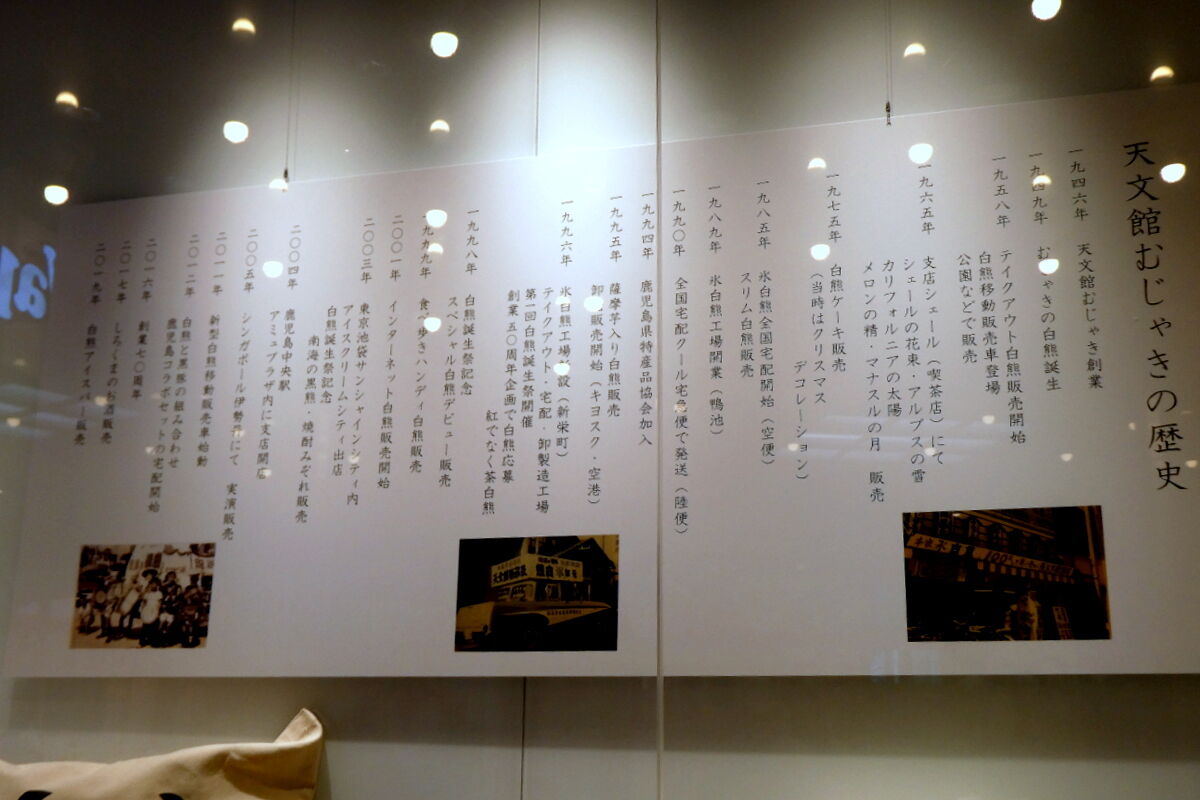 天文館むじゃきの歴史
一九四六年 天文館むじゃき創業
一九四九年 むじゃきの白熊誕生
一九五八年 テイクアウト白熊販売開始
白熊移動販売車登場
公園などで販売
一九六五年 支店シェール（喫茶店）にて
シェールの花束・アルプスの雪
カリフォルニアの太陽
メロンの精・マナスルの月 販売
一九七五年 白熊ケーキ販売
（当時はクリスマス
デコレーション）
一九八五年 氷白熊全国宅配開始（空便）
スリム白熊販売
一九八九年 氷白熊工場開業（鴨池）
一九九〇年 全国宅配クール宅急便で発送（陸便）
一九九四年 鹿児島県特産品協会加入
一九九五年 薩摩芋入り白熊販売
卸販売開始（キヨスク・空港）
一九九六年 氷白熊工場新設（新栄町）
テイクアウト・宅配・卸製造工場
第一回白熊誕生祭開催
創業五〇周年企画で白熊応募
紅でなく茶白熊
一九九八年 白熊誕生祭記念
スペシャル白熊デビュー販売
一九九九年 食べ歩きハンディ白熊販売
二〇〇一年 インターネット白熊販売開始
二〇〇三年 東京池袋サンシャインシティ内
アイスクリームシティ出店
白熊誕生祭記念
南海の黒熊・焼酎みぞれ販売
二〇〇四年 鹿児島中央駅
アミュプラザ内に支店開店
二〇〇五年 シンガポール伊勢丹にて 実演販売
二〇一一年 新型白熊移動販売車始動
二〇一二年 白熊と黒豚の組み合わせ
鹿児島コラボセットの宅配開始
二〇一六年 創業七〇周年
二〇一七年 しろくまのお酒販売
二〇一九年 白熊アイスバー販売